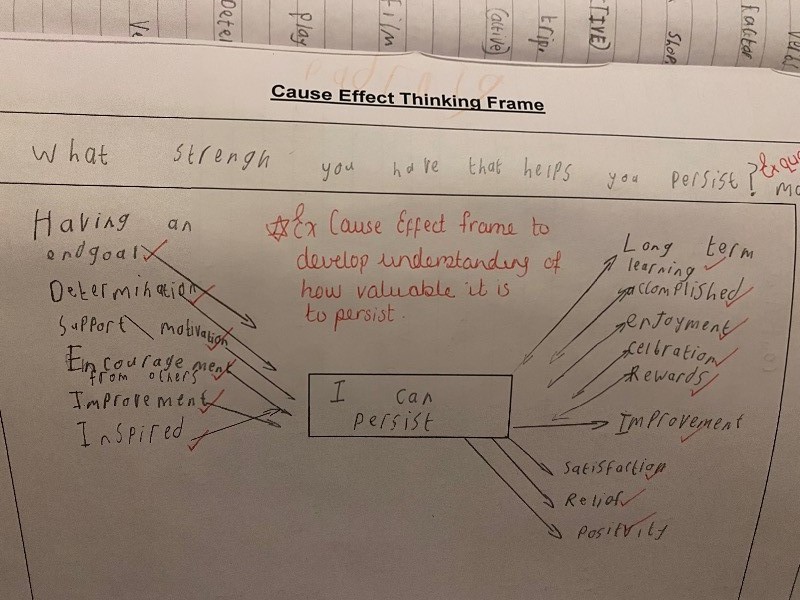 Verbs
factor
Shop
TIVE)
trip.
(active)
film
play
Deter
Cause Effect Thinking Frame
What strengh you have that helps you persist?
Having an
endgoal
Determination
Support \ motivation
Encouragement
from others
Improvement
Inspired
☆Ex Cause Effect frame to
develop understanding of
how valuable it is
to persist.
I can
persist
Long term
learning
accomplished
enjoyment
celbration
Rewards
Improvement
Satisfaction
Relief
Positivity